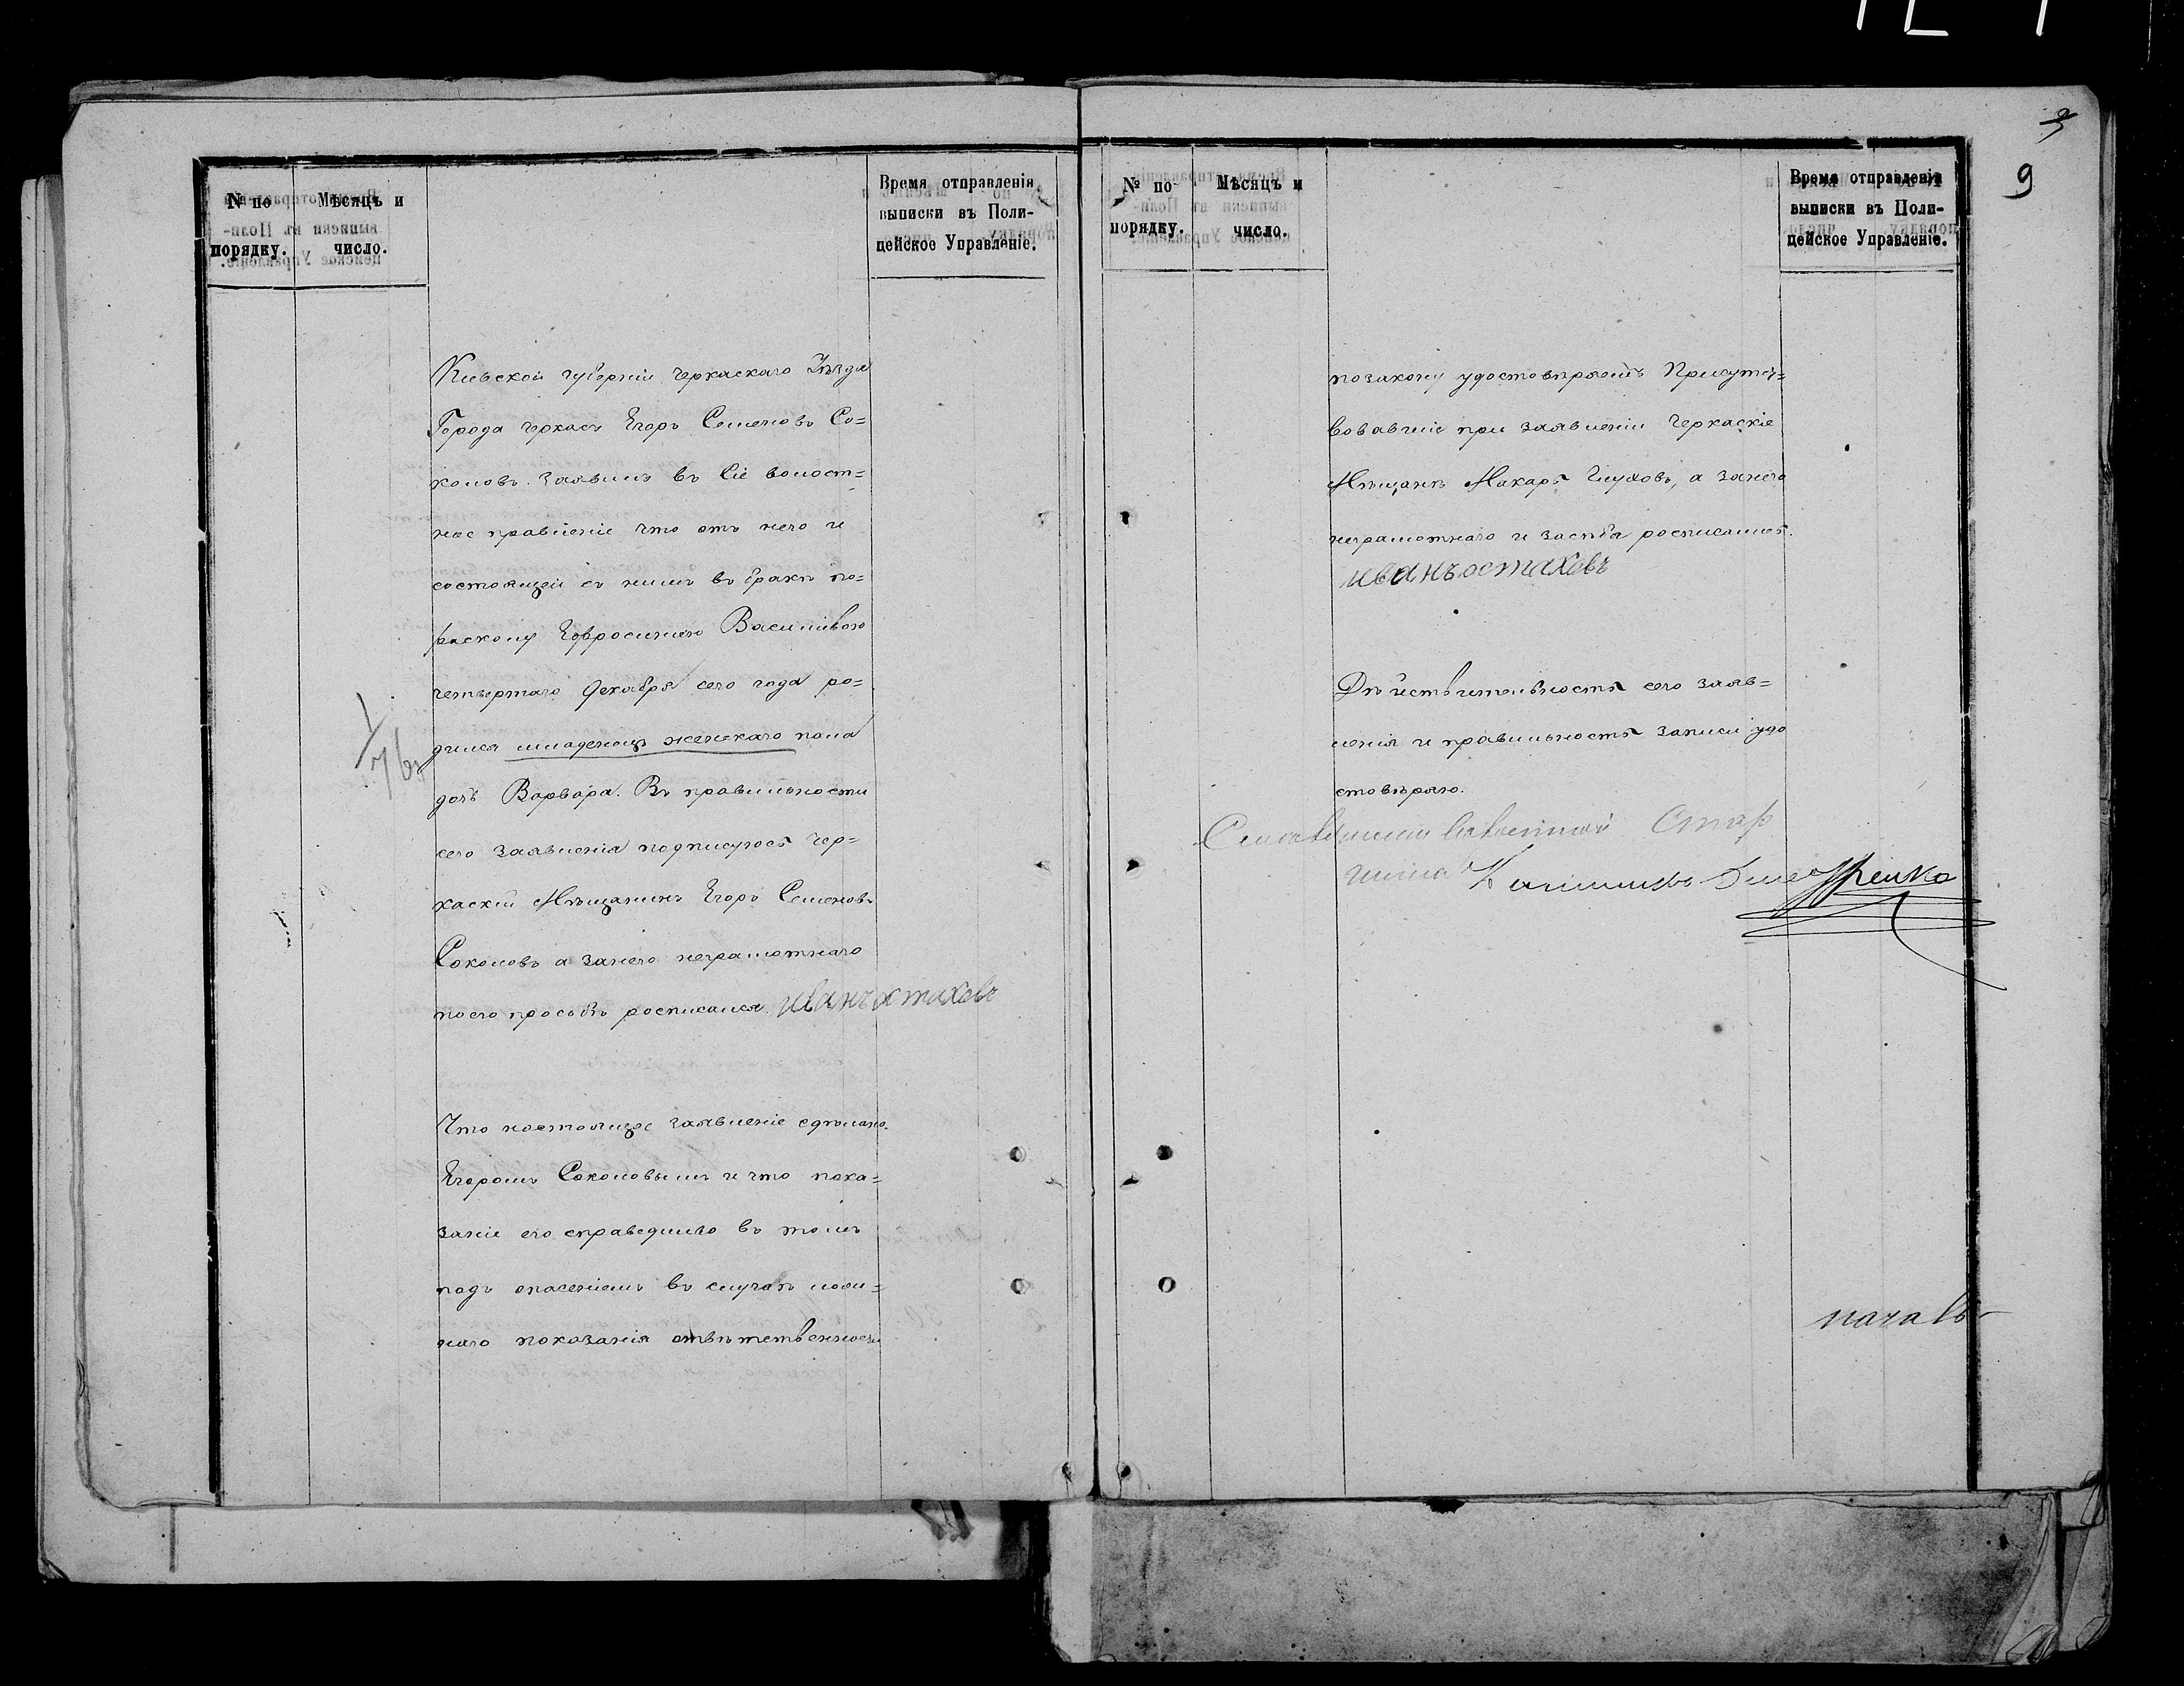 № по порядку.
Мѣсяцъ и число.
Время отправленія
выписки въ Поли-
цейское Управленіе.
Кіевской губерніи Черкаскаго Уѣзда
Города Черкасъ Егоръ Семеновъ Со=
коловъ. Заявилъ въ Сіе волост=
ное правленіе что отъ него и
состоящей съ нимъ въ бракѣ по=
раскому Евфросинію Васильевою
четвертаго Декабря сего года ро=
дился младенецъ женскаго пола
дочь Варвара. Въ правильности
сего заявленія подписуюсь Чер=
каскій Мѣщанинъ Егоръ Семеновъ
Соколовъ а занего неграмотнаго
поего просьбѣ росписался. иванъ остаховъ
Что настоящее заявленіе сдѣлано
Егоромъ Соколовымъ и что пока=
заніе его справедливо въ томъ
подъ опасеніемъ въ случаѣ лож=
наго показанія отвѣтственности
9
№ по порядку.
Мѣсяцъ и число.
Время отправленія
выписки въ Поли-
цейское Управленіе.
позакону удостовѣряютъ Присутст=
вовавшіе при заявленіи Черкаскіе
Мѣщане Макаръ Глуховъ, а занего
неграмотнаго и засебя росписался.
иванъ остаховъ
Дѣйствительность сего заяв=
ленія и правильность записи удо
стовѣряю.
Стар
шина